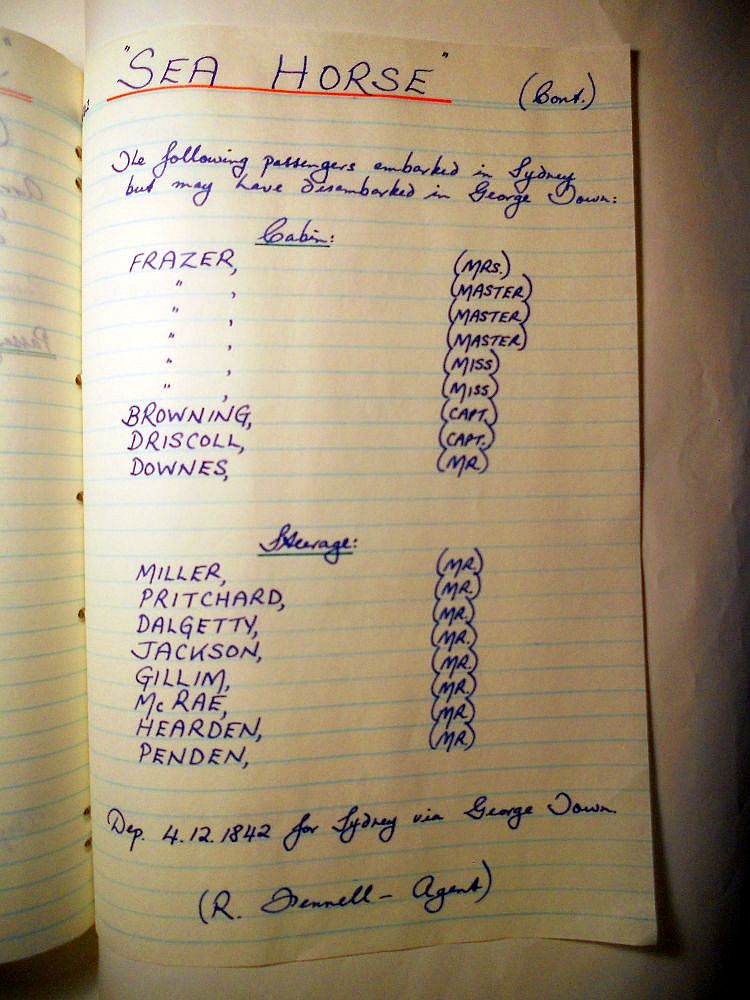 "SEA HORSE" (Cont.)
The following passengers embarked in Sydney
but may have disembarked in George Town:
Cabin:
FRAZER, (MRS.)
" , (MASTER)
" , (MASTER)
" , (MASTER)
" , (MISS)
" , (MISS)
BROWNING, (CAPT.)
DRISCOLL, (CAPT.)
DOWNES, (MR.)
Steerage:
MILLER, (MR.)
PRITCHARD, (MR.)
DALGETTY, (MR.)
JACKSON, (MR.)
GILLIM, (MR.)
McRAE, (MR.)
HEARDEN, (MR.)
PENDEN, (MR.)
Dep. 4.12.1842 for Sydney via George Town.
(R. Fennell - Agent)